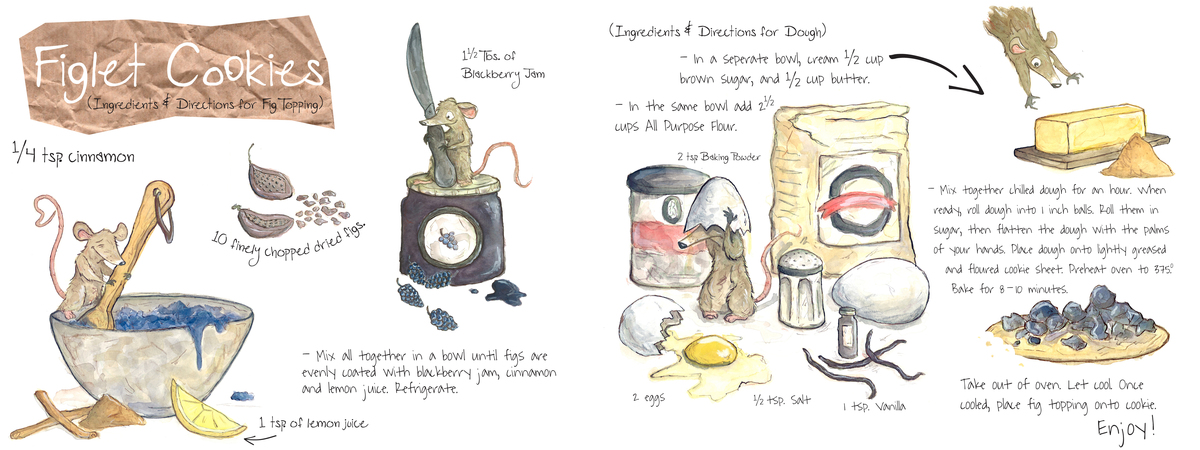 Figlet Cookies
(Ingredients & Directions for Fig Topping)
1/4 tsp cinnamon
10 finely chopped dried figs.
1 1/2 Tbs. of
Blackberry Jam
- Mix all together in a bowl until figs are
evenly coated with blackberry jam, cinnamon
and lemon juice. Refrigerate.
1 tsp of lemon juice
(Ingredients & Directions for Dough)
- In a seperate bowl, cream 1/2 cup
brown sugar, and 1/2 cup butter.
- In the same bowl add 2 1/2
cups All Purpose Flour.
2 tsp Baking Powder
2 eggs
1/2 tsp. Salt
1 tsp. Vanilla
- Mix together chilled dough for an hour. When
ready, roll dough into 1 inch balls. Roll them in
sugar, then flatten the dough with the palms
of your hands. Place dough onto lightly greased
and floured cookie sheet. Preheat oven to 375°
Bake for 8-10 minutes.
Take out of oven. Let cool. Once
cooled, place fig topping onto cookie.
Enjoy!